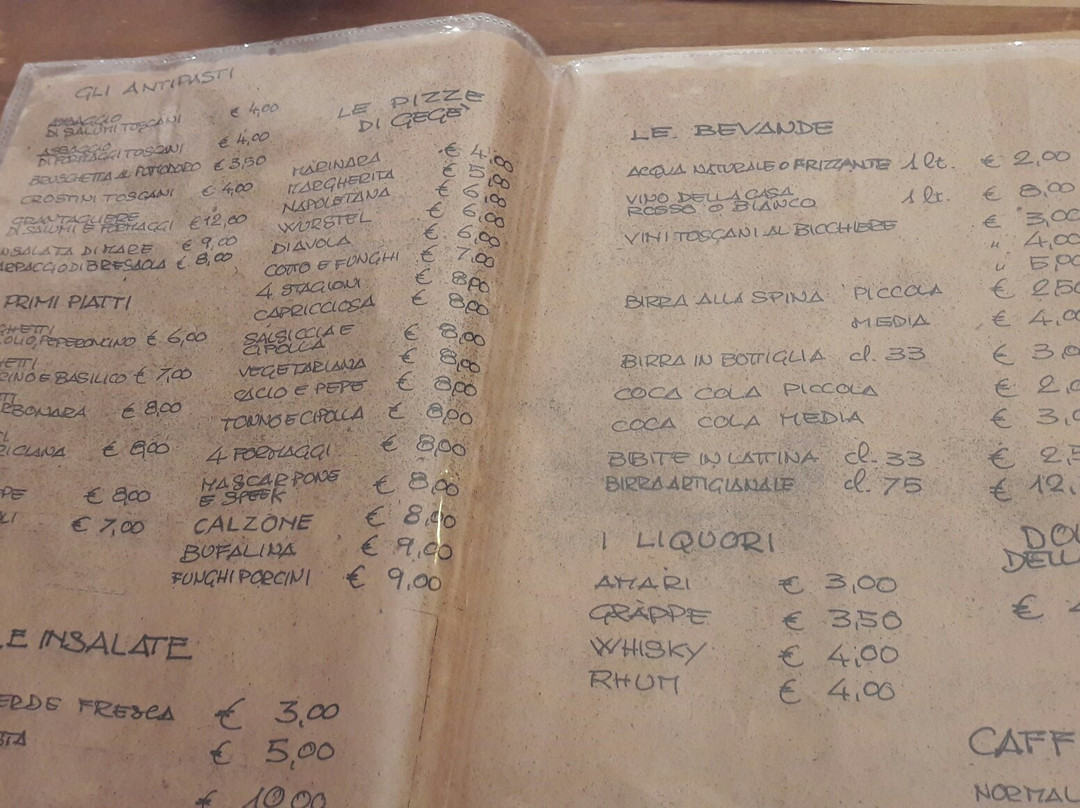 GLI ANTIPASTI
ASSAGGIO
DI SALUMI TOSCANI € 4,00
ASSAGGIO
DI FORMAGGI TOSCANI € 4,00
BRUSCHETTA AL POMODORO € 3,50
CROSTINI TOSCANI € 4,00
GRANTAGLIERE
DI SALUMI E FORMAGGI € 12,00
NSALATA DI MARE € 9,00
ARPACCIO DI BRESAOLA € 8,00
PRIMI PIATTI
GHETTI
OLIO, PEPERONCINO € 6,00
ETTI
RINO E BASILICO € 7,00
TI
RBONARA € 8,00
RICIANA € 8,00
PE € 8,00
LI € 7,00
LE INSALATE
ERDE FRESCA € 3,00
STA € 5,00
€ 10,00
LE PIZZE
DI GEGE'
MARINARA € 4,
MARGHERITA € 5,
NAPOLETANA € 6,
WURSTEL € 6,
DIAVOLA € 6,
COTTO E FUNGHI € 7,
4 STAGIONI € 8,00
CAPRICCIOSA € 8,00
SALSICCIA E
CIPOLLA € 8,00
VEGETARIANA € 8,00
CACIO E PEPE € 8,00
TONNO E CIPOLLA € 8,00
4 FORMAGGI € 8,00
MASCARPONE
E SPEEK € 8,00
CALZONE € 8,00
BUFALINA € 9,00
FUNGHI PORCINI € 9,00
LE BEVANDE
ACQUA NATURALE O FRIZZANTE 1 lt. € 2,00
VINO DELLA CASA
ROSSO O BIANCO 1 lt. € 8,00
VINI TOSCANI AL BICCHIERE € 3,00
" 4,00
" 5,00
BIRRA ALLA SPINA PICCOLA € 2,50
MEDIA € 4,00
BIRRA IN BOTTIGLIA cl. 33 € 3,0
COCA COLA PICCOLA € 2,0
COCA COLA MEDIA € 3,
BIBITE IN LATTINA cl. 33 € 2,5
BIRRA ARTIGIANALE cl. 75 € 12,
I LIQUORI
AMARI € 3,00
GRAPPE € 3,50
WHISKY € 4,00
RHUM € 4,00
DOL
DELL
€
CAFF
NORMAL